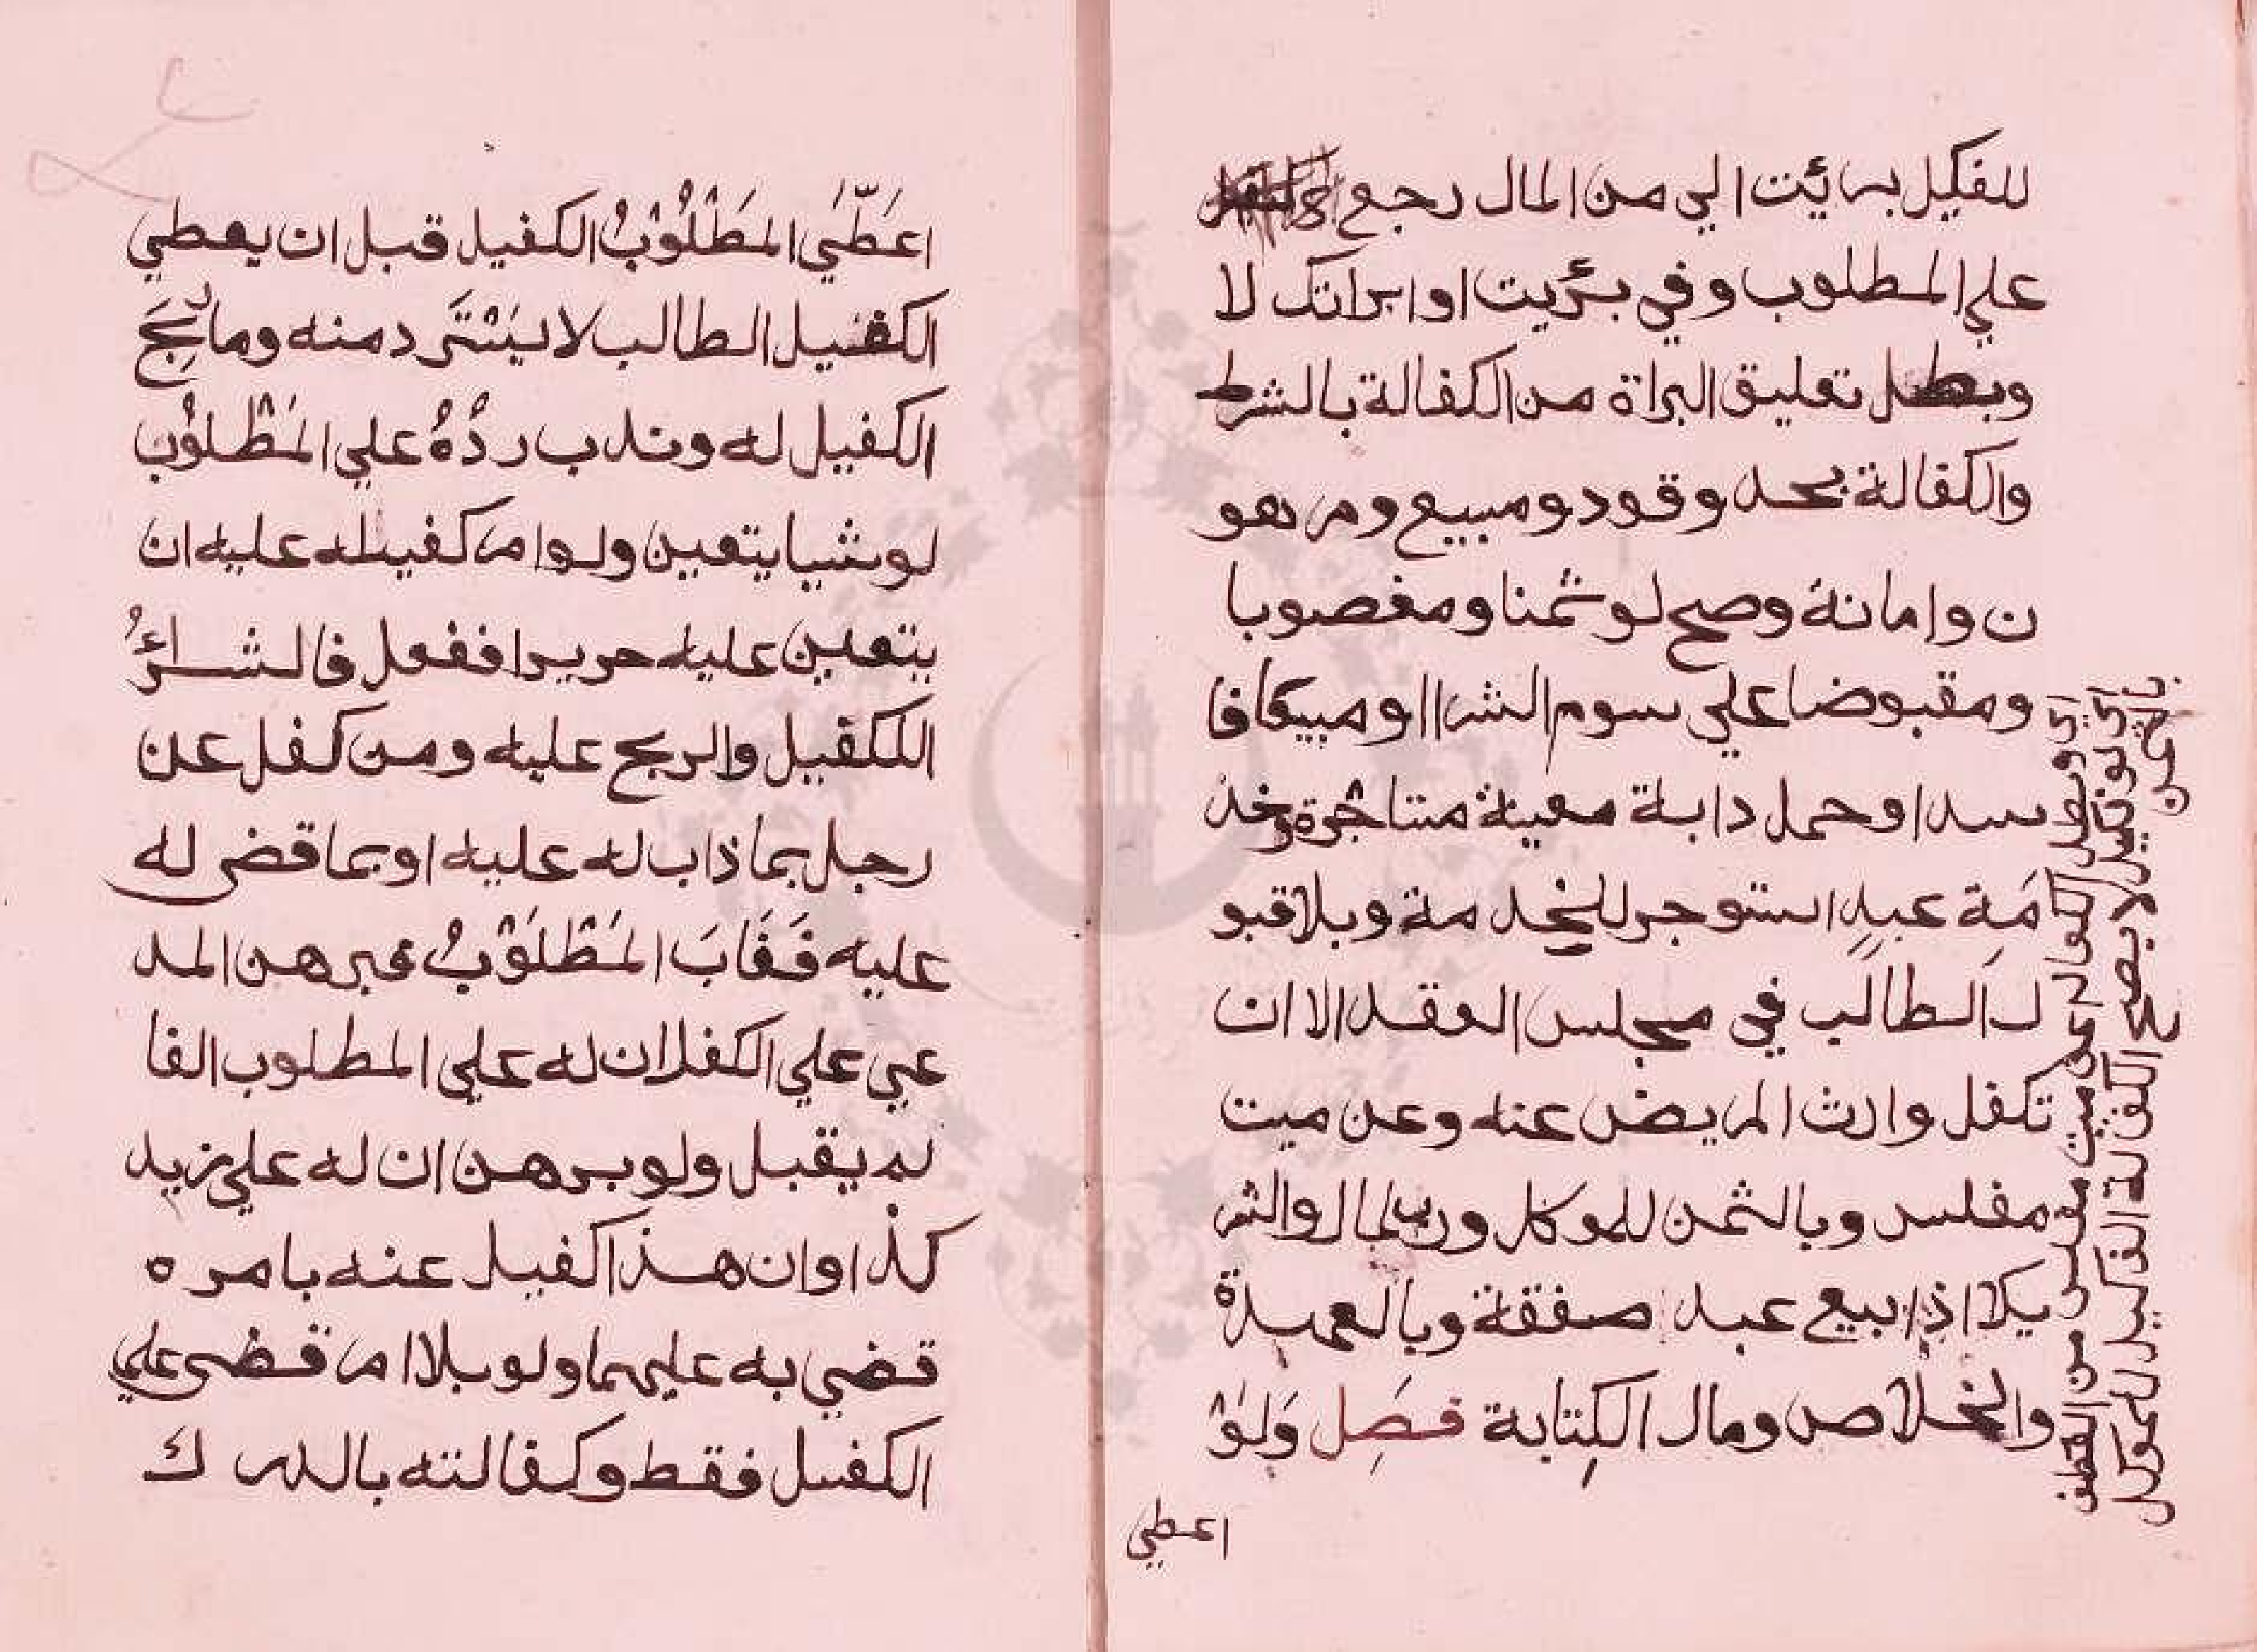 للفكيل برائيت الي من المال رجع
علي المطلوب وفي برئيت او ابراتك لا
وبطل تعليق البراة من الكفالة بالشرط
والكفالة بحد وقود ومبيع ومرهو
ن وامانة وصح لو ثمنا ومغصوبا
ومقبوضا علي سوم الشرا او مبيعا فا
سدا وحمل دابة معينة مستاجرة وخد
مة عبد استوجر للخدمة وبلا قبو
ل الطالب في مجلس العقد الا ان
تكفل وارث المريض عنه وعن ميت
مفلس وبالثمن للموكل ورب المال والشر
يك اذا بيع عبد صفقة وبالعهدة
والخلاص ومال الكتابة فصل ولو
اعطي
اي وبطل الكفالة عن ميت مفلس من
اي لو وكيل لا يصح الكفالة الوكيل للموكل
بالثمن
اعطي المطلوب الكفيل قبل ان يعطي
الكفيل الطالب لا يسترد منه وما ربح
الكفيل له وندب رده علي المطلوب
لو شيا يتعين ولو امر كفيله عليه ان
يتعين عليه حريرا ففعل فالشراؤ
للكفيل والربح عليه ومن كفل عن
رجل بما ذاب له عليه او بما قضي له
عليه فغاب المطلوب فبرهن المد
عي علي الكفلان له علي المطلوب الفا
لم يقبل ولو برهن ان له علي زيد
كذا وان هذا كفيل عنه بامره
قضي به عليهما ولو بلا امر قضي علي
الكفيل فقط وكفالته بالدرك